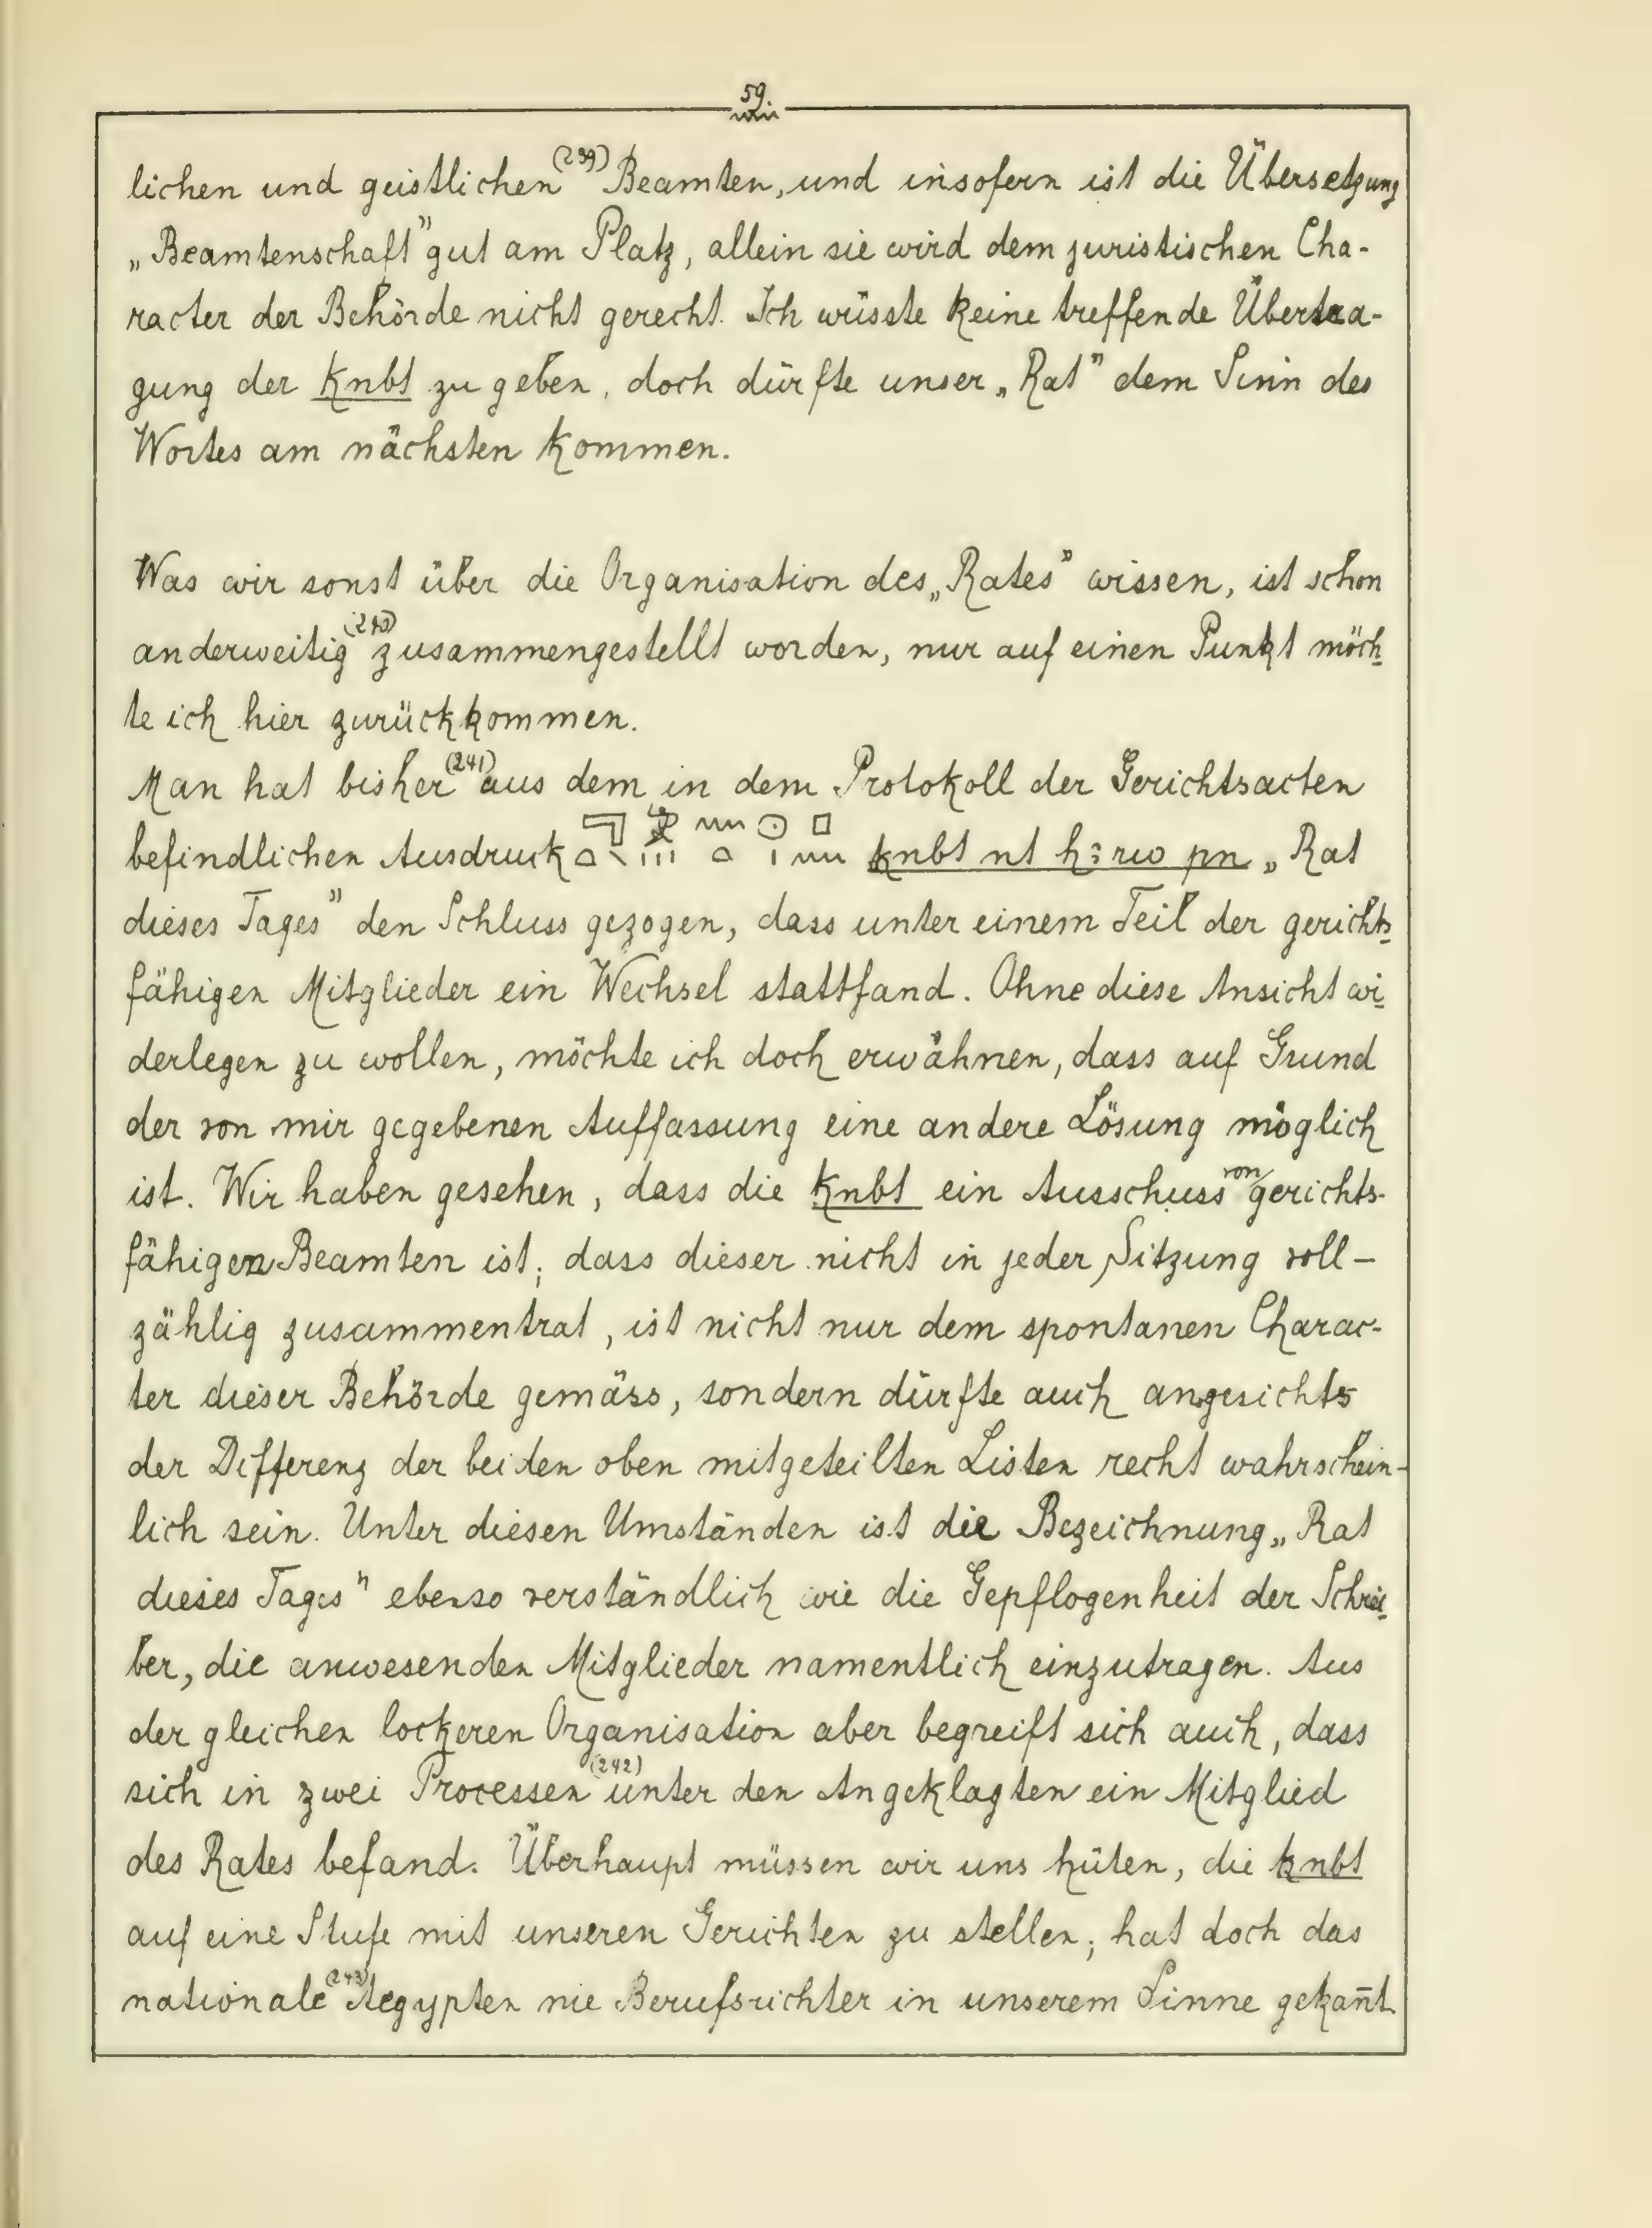 59.
lichen und geistlichen (239) Beamten, und insofern ist die Übersetzung
„Beamtenschaft" gut am Platz, allein sie wird dem juristischen Cha-
racter der Behörde nicht gerecht. Ich wüsste keine treffende Übertra-
gung der knbt zu geben, doch dürfte unser „Rat" dem Sinn des
Wortes am nächsten kommen.
Was wir sonst über die Organisation des „Rates" wissen, ist schon
anderweitig (240) zusammengestellt worden, nur auf einen Punkt möch-
te ich hier zurückkommen.
Man hat bisher (241) aus dem in dem Protokoll der Gerichtsacten
befindlichen Ausdruck knbt nt hꜣrw pn „Rat
dieses Tages" den Schluss gezogen, dass unter einem Teil der gerichts-
fähigen Mitglieder ein Wechsel stattfand. Ohne diese Ansicht wi-
derlegen zu wollen, möchte ich doch erwähnen, dass auf Grund
der von mir gegebenen Auffassung eine andere Lösung möglich
ist. Wir haben gesehen, dass die knbt ein Ausschuss von gerichts-
fähigen Beamten ist; dass dieser nicht in jeder Sitzung voll-
zählig zusammentrat, ist nicht nur dem spontanen Charac-
ter dieser Behörde gemäss, sondern dürfte auch angesichts
der Differenz der beiden oben mitgeteilten Listen recht wahrschein-
lich sein. Unter diesen Umständen ist die Bezeichnung „Rat
dieses Tages" ebenso verständlich wie die Gepflogenheit der Schrei-
ber, die anwesenden Mitglieder namentlich einzutragen. Aus
der gleichen lockeren Organisation aber begreift sich auch, dass
sich in zwei Processen (242) unter den Angeklagten ein Mitglied
des Rates befand. Überhaupt müssen wir uns hüten, die knbt
auf eine Stufe mit unseren Gerichten zu stellen; hat doch das
nationale (243) Aegypten nie Berufsrichter in unserem Sinne gekan̄t.